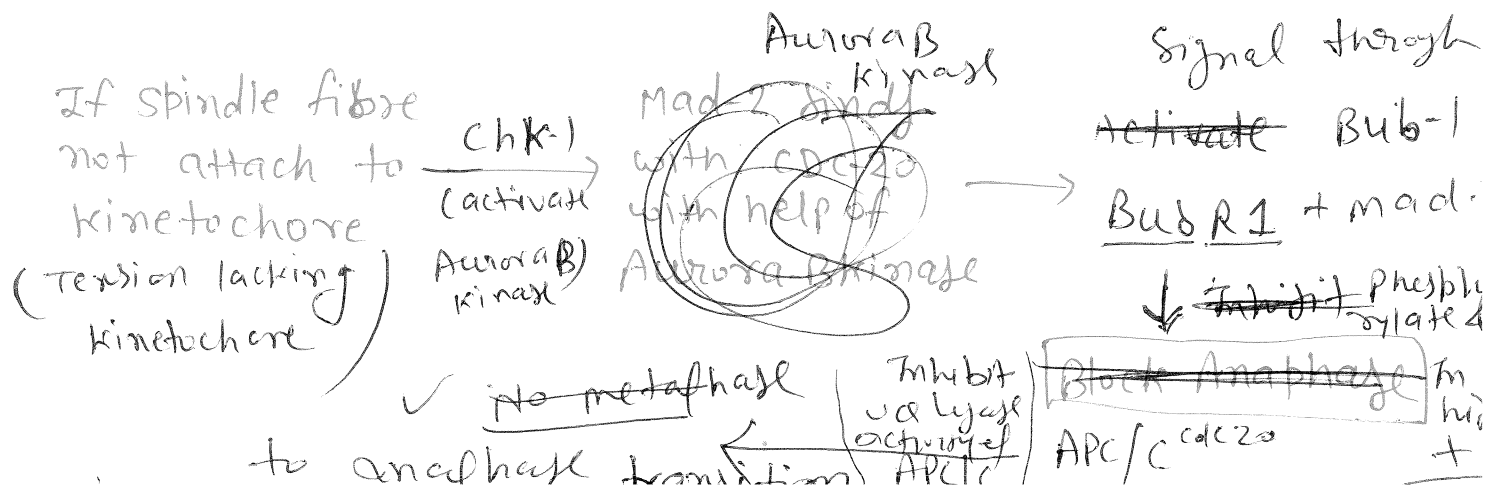 If spindle fibre
not attach to
kinetochore
(Tension lacking
kinetochore)
Chk-1
(activate
Aurora B)
kinase
Aurora B
kinase
Mad-2 binds
with cdc-20
with help of
Aurora B kinase
Signal through
Activate Bub-1
BubR1 + mad-
Inhibit
Block Anaphase
APC/C cdc20
+
Inhibit
activity of
APC/C
No metaphase
to anaphase transition